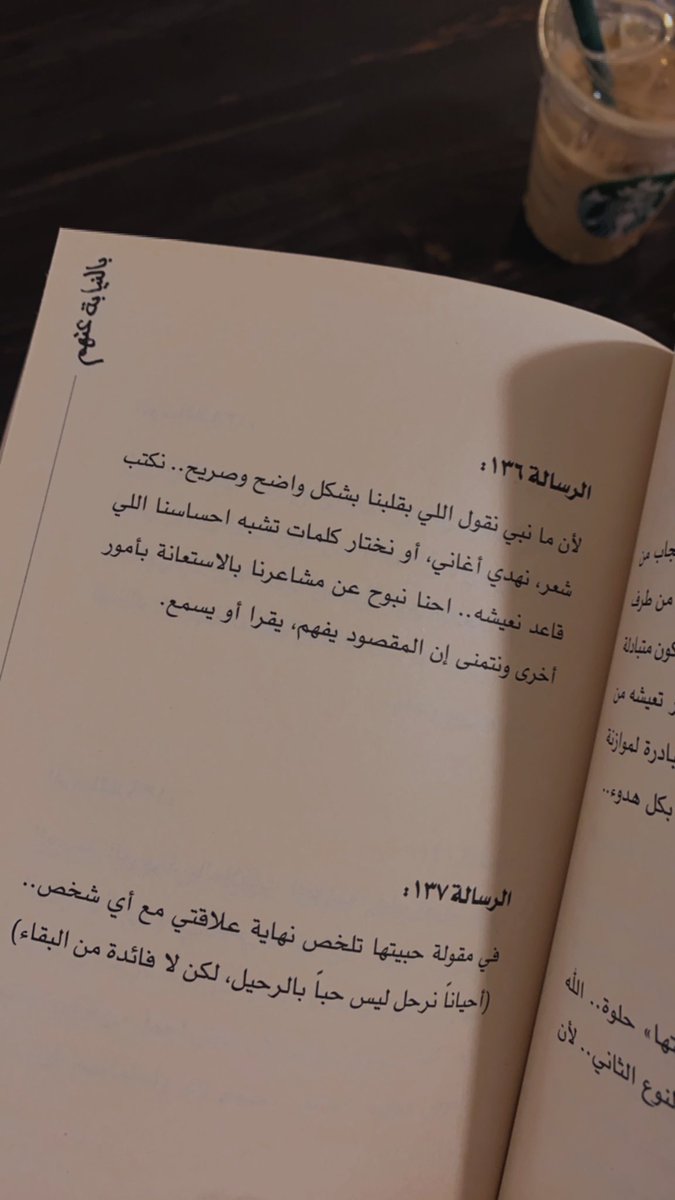 بالنيابة عنهم
الرسالة ١٣٦:
لأن ما نبي نقول اللي بقلبنا بشكل واضح وصريح.. نكتب
شعر، نهدي أغاني، أو نختار كلمات تشبه احساسنا اللي
قاعد نعيشه.. احنا نبوح عن مشاعرنا بالاستعانة بأمور
أخرى ونتمنى إن المقصود يفهم، يقرا أو يسمع.
الرسالة ١٣٧:
في مقولة حبيتها تلخص نهاية علاقتي مع أي شخص..
(أحياناً نرحل ليس حباً بالرحيل، لكن لا فائدة من البقاء)
من
من طرف
متبادلة
تعيشه من
لموازنة
بكل هدوء..
حلوة.. الله
الثاني.. لأن